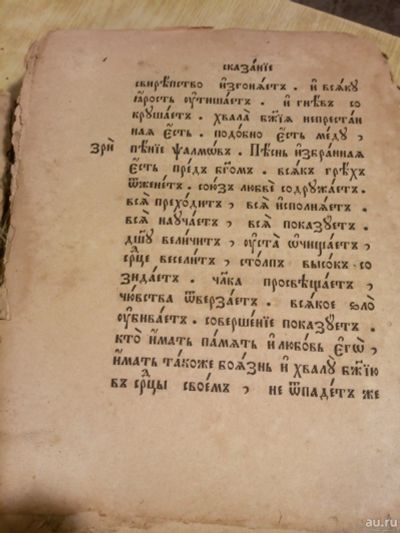 сказа́нїе
свирѣ́пство и҆згонѧ́етъ . и҆ всѧ́кꙋ
ꙗ҆́рость ᲂу҆тиша́етъ . и҆ гнѣ́въ со
крꙋша́етъ . хвала̀ бж҃їѧ непреста́н
наѧ є҆́сть . подо́бно є҆́сть ме́дꙋ ,
зрѝ пѣ́нїе ѱалмѡ́въ . Пѣ́снь и҆збра́ннаѧ
є҆́сть пред̾ бг҃омъ . всѧ́къ грѣ́хъ
ѿжене́тъ . сою́зъ любвѐ содрꙋжа́етъ .
всѧ̑ прехо́дитъ , всѧ̑ и҆сполнѧ́етъ .
всѧ̑ наꙋча́етъ , всѧ̑ показꙋ́етъ .
дш҃ꙋ вели́чит̾ , ᲂу҆ста̀ ѡ҆чища́етъ ,
срⷣце весели́т̾ , сто́лпъ высо́къ со
зида́етъ . чл҃ка просвѣща́етъ ,
чю́вства ѿверза́етъ . всѧ́кое ѕло̀
ᲂу҆бива́етъ . соверше́нїе показꙋ́етъ .
кто̀ и҆́мать па́мѧть и҆ любо́вь є҆гѡ̀ ,
и҆́мать та́коже боѧ́знь и҆ хвалꙋ̀ бж҃їю
въ срⷣцы свое́мъ , не ѿпаде́тъ же
au.ru